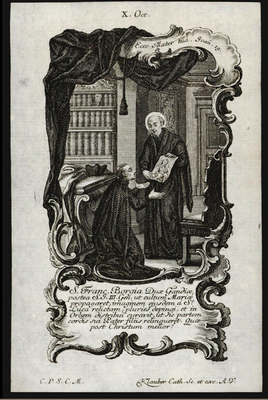 X. Oct.
Ecce Mater tua. Joan. 19.
S. Franc. Borgia Dux Gandiæ,
postea S. J. III. Gen. ut cultum Mariæ
propagaret, imaginem ejusdem a S.
Luca relictam, pluries depingi, et in
Orbem distribui curavit, ut sic partem
cordis sui Pater filiis relinqueret. Quæ
post Christum melior?
C. P. S. C. M.
Klauber Cath. Sc. et exc. A. V.